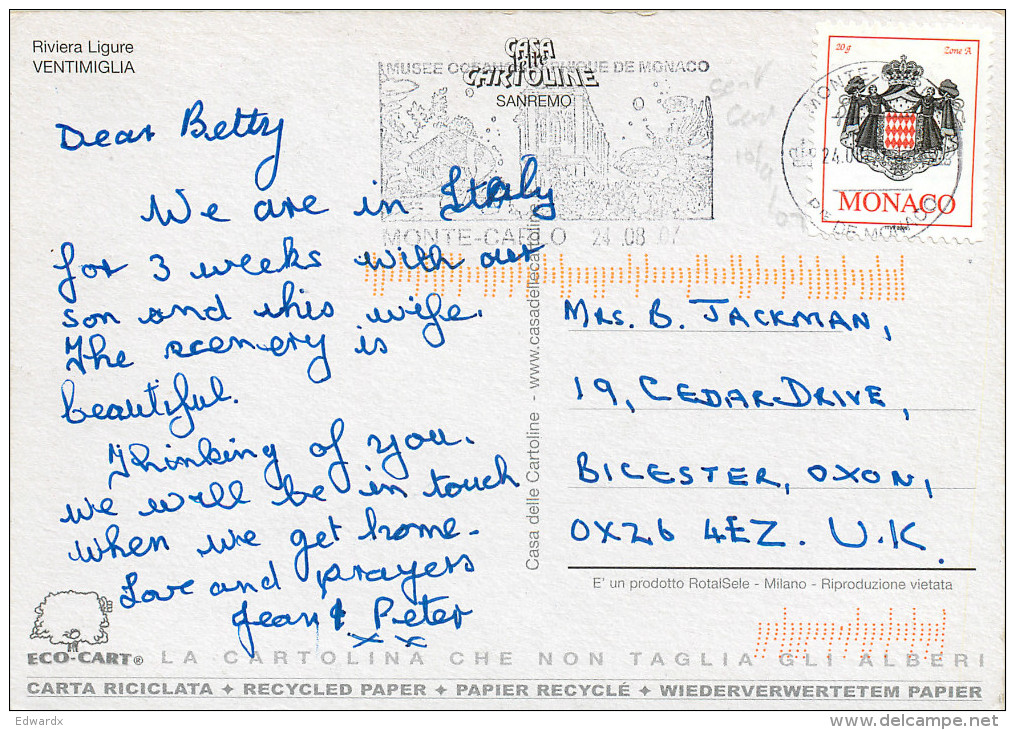 Riviera Ligure
VENTIMIGLIA
CASA
delle
CARTOLINE
SANREMO
MUSEE OCEANOGRAPHIQUE DE MONACO
MONTE-CARLO 24 .08 .07
20g Zone A
MONACO
MONTE-
24.0
PTE DE MONACO
sent
Card
Dear Betty
We are in Italy
for 3 weeks with our
son and this wife.
The scenery is
beautiful.
Thinking of you.
We will be in touch
when we get home.
Love and prayers
Jean & Peter
x x
Casa delle Cartoline - www.casadellecartoline
MRS. B. JACKMAN,
19, CEDAR DRIVE,
BICESTER, OXON,
OX26 4EZ. U.K.
E' un prodotto RotalSele - Milano - Riproduzione vietata
ECO-CART® LA CARTOLINA CHE NON TAGLIA GLI ALBERI
CARTA RICICLATA ✦ RECYCLED PAPER ✦ PAPIER RECYCLÉ ✦ WIEDERVERWERTETEM PAPIER
Edwardx
delcampe.net